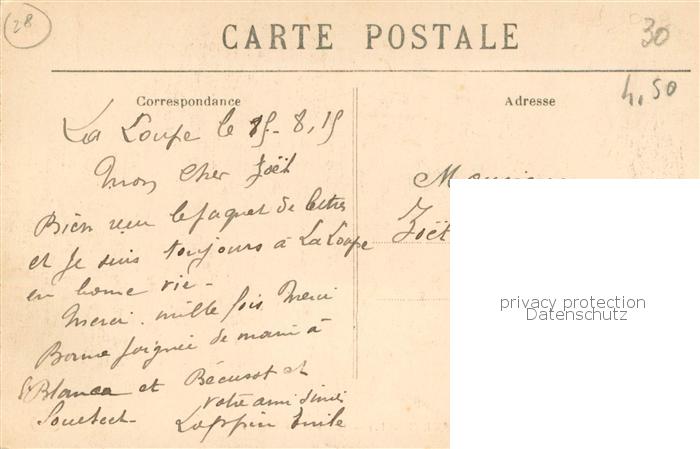 28
CARTE POSTALE
30
4,50
Correspondance
Adresse
La Loupe le 15-8.15
Mon Cher Zoël
Bien reçu le paquet de lettres
et Je suis toujours à La Loupe
en bonne vie -
Merci. mille fois Merci
Bonne poignée de main à
Blanca et Bécussot et
votre ami
Emile
Monsieur
Zoët
privacy protection
Datenschutz